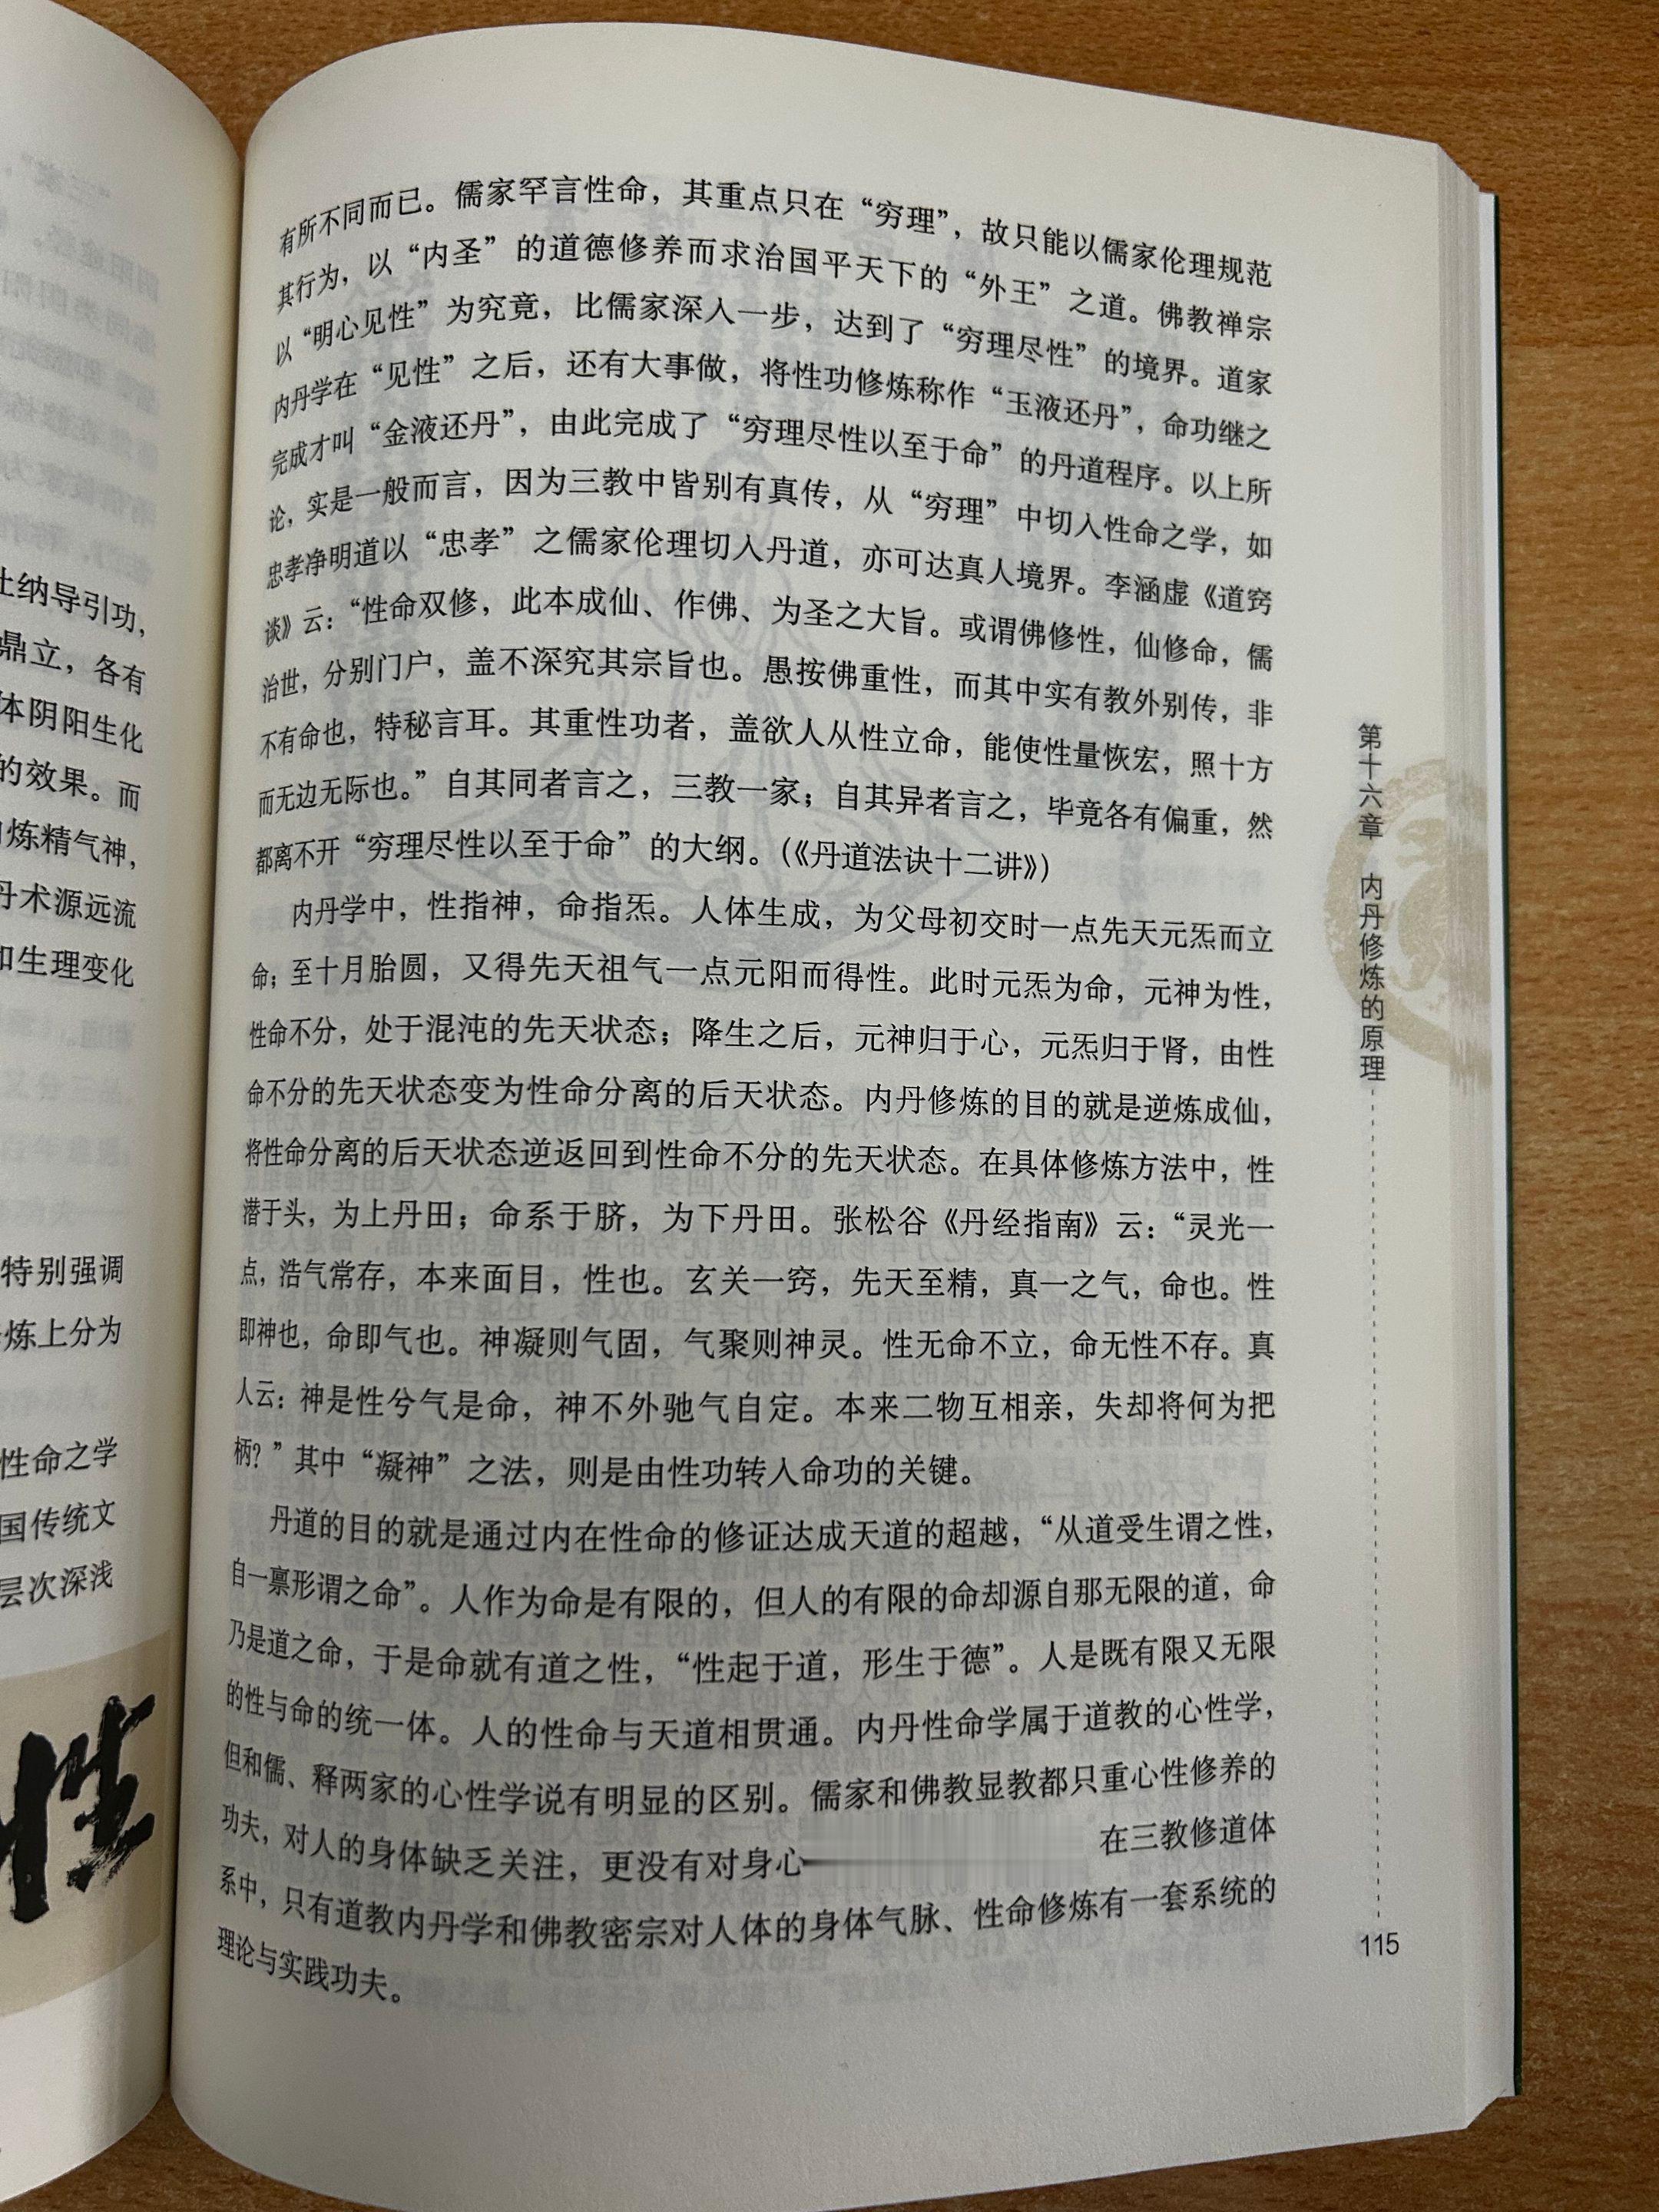 士纳导引功，
鼎立，各有
体阴阳生化
的效果。而
炼精气神，
丹术源远流
和生理变化
特别强调
炼上分为
性命之学
国传统文
层次深浅
性
有所不同而已。儒家罕言性命，其重点只在“穷理”，故只能以儒家伦理规范
其行为，以“内圣”的道德修养而求治国平天下的“外王”之道。佛教禅宗
以“明心见性”为究竟，比儒家深入一步，达到了“穷理尽性”的境界。道家
内丹学在“见性”之后，还有大事做，将性功修炼称作“玉液还丹”，命功继之
完成才叫“金液还丹”，由此完成了“穷理尽性以至于命”的丹道程序。以上所
论，实是一般而言，因为三教中皆别有真传，从“穷理”中切入性命之学，如
忠孝净明道以“忠孝”之儒家伦理切入丹道，亦可达真人境界。李涵虚《道窍
谈》云：“性命双修，此本成仙、作佛、为圣之大旨。或谓佛修性，仙修命，儒
治世，分别门户，盖不深究其宗旨也。愚按佛重性，而其中实有教外别传，非
不有命也，特秘言耳。其重性功者，盖欲人从性立命，能使性量恢宏，照十方
而无边无际也。”自其同者言之，三教一家；自其异者言之，毕竟各有偏重，然
都离不开“穷理尽性以至于命”的大纲。（《丹道法诀十二讲》）
内丹学中，性指神，命指炁。人体生成，为父母初交时一点先天元炁而立
命；至十月胎圆，又得先天祖气一点元阳而得性。此时元炁为命，元神为性，
性命不分，处于混沌的先天状态；降生之后，元神归于心，元炁归于肾，由性
命不分的先天状态变为性命分离的后天状态。内丹修炼的目的就是逆炼成仙，
将性命分离的后天状态逆返回到性命不分的先天状态。在具体修炼方法中，性
潜于头，为上丹田；命系于脐，为下丹田。张松谷《丹经指南》云：“灵光一
点，浩气常存，本来面目，性也。玄关一窍，先天至精，真一之气，命也。性
即神也，命即气也。神凝则气固，气聚则神灵。性无命不立，命无性不存。真
人云：神是性兮气是命，神不外驰气自定。本来二物互相亲，失却将何为把
柄？”其中“凝神”之法，则是由性功转入命功的关键。
丹道的目的就是通过内在性命的修证达成天道的超越，“从道受生谓之性，
自一禀形谓之命”。人作为命是有限的，但人的有限的命却源自那无限的道，命
乃是道之命，于是命就有道之性，“性起于道，形生于德”。人是既有限又无限
的性与命的统一体。人的性命与天道相贯通。内丹性命学属于道教的心性学，
但和儒、释两家的心性学说有明显的区别。儒家和佛教显教都只重心性修养的
功夫，对人的身体缺乏关注，更没有对身心 在三教修道体
系中，只有道教内丹学和佛教密宗对人体的身体气脉、性命修炼有一套系统的
理论与实践功夫。
第十六章 内丹修炼的原理
115